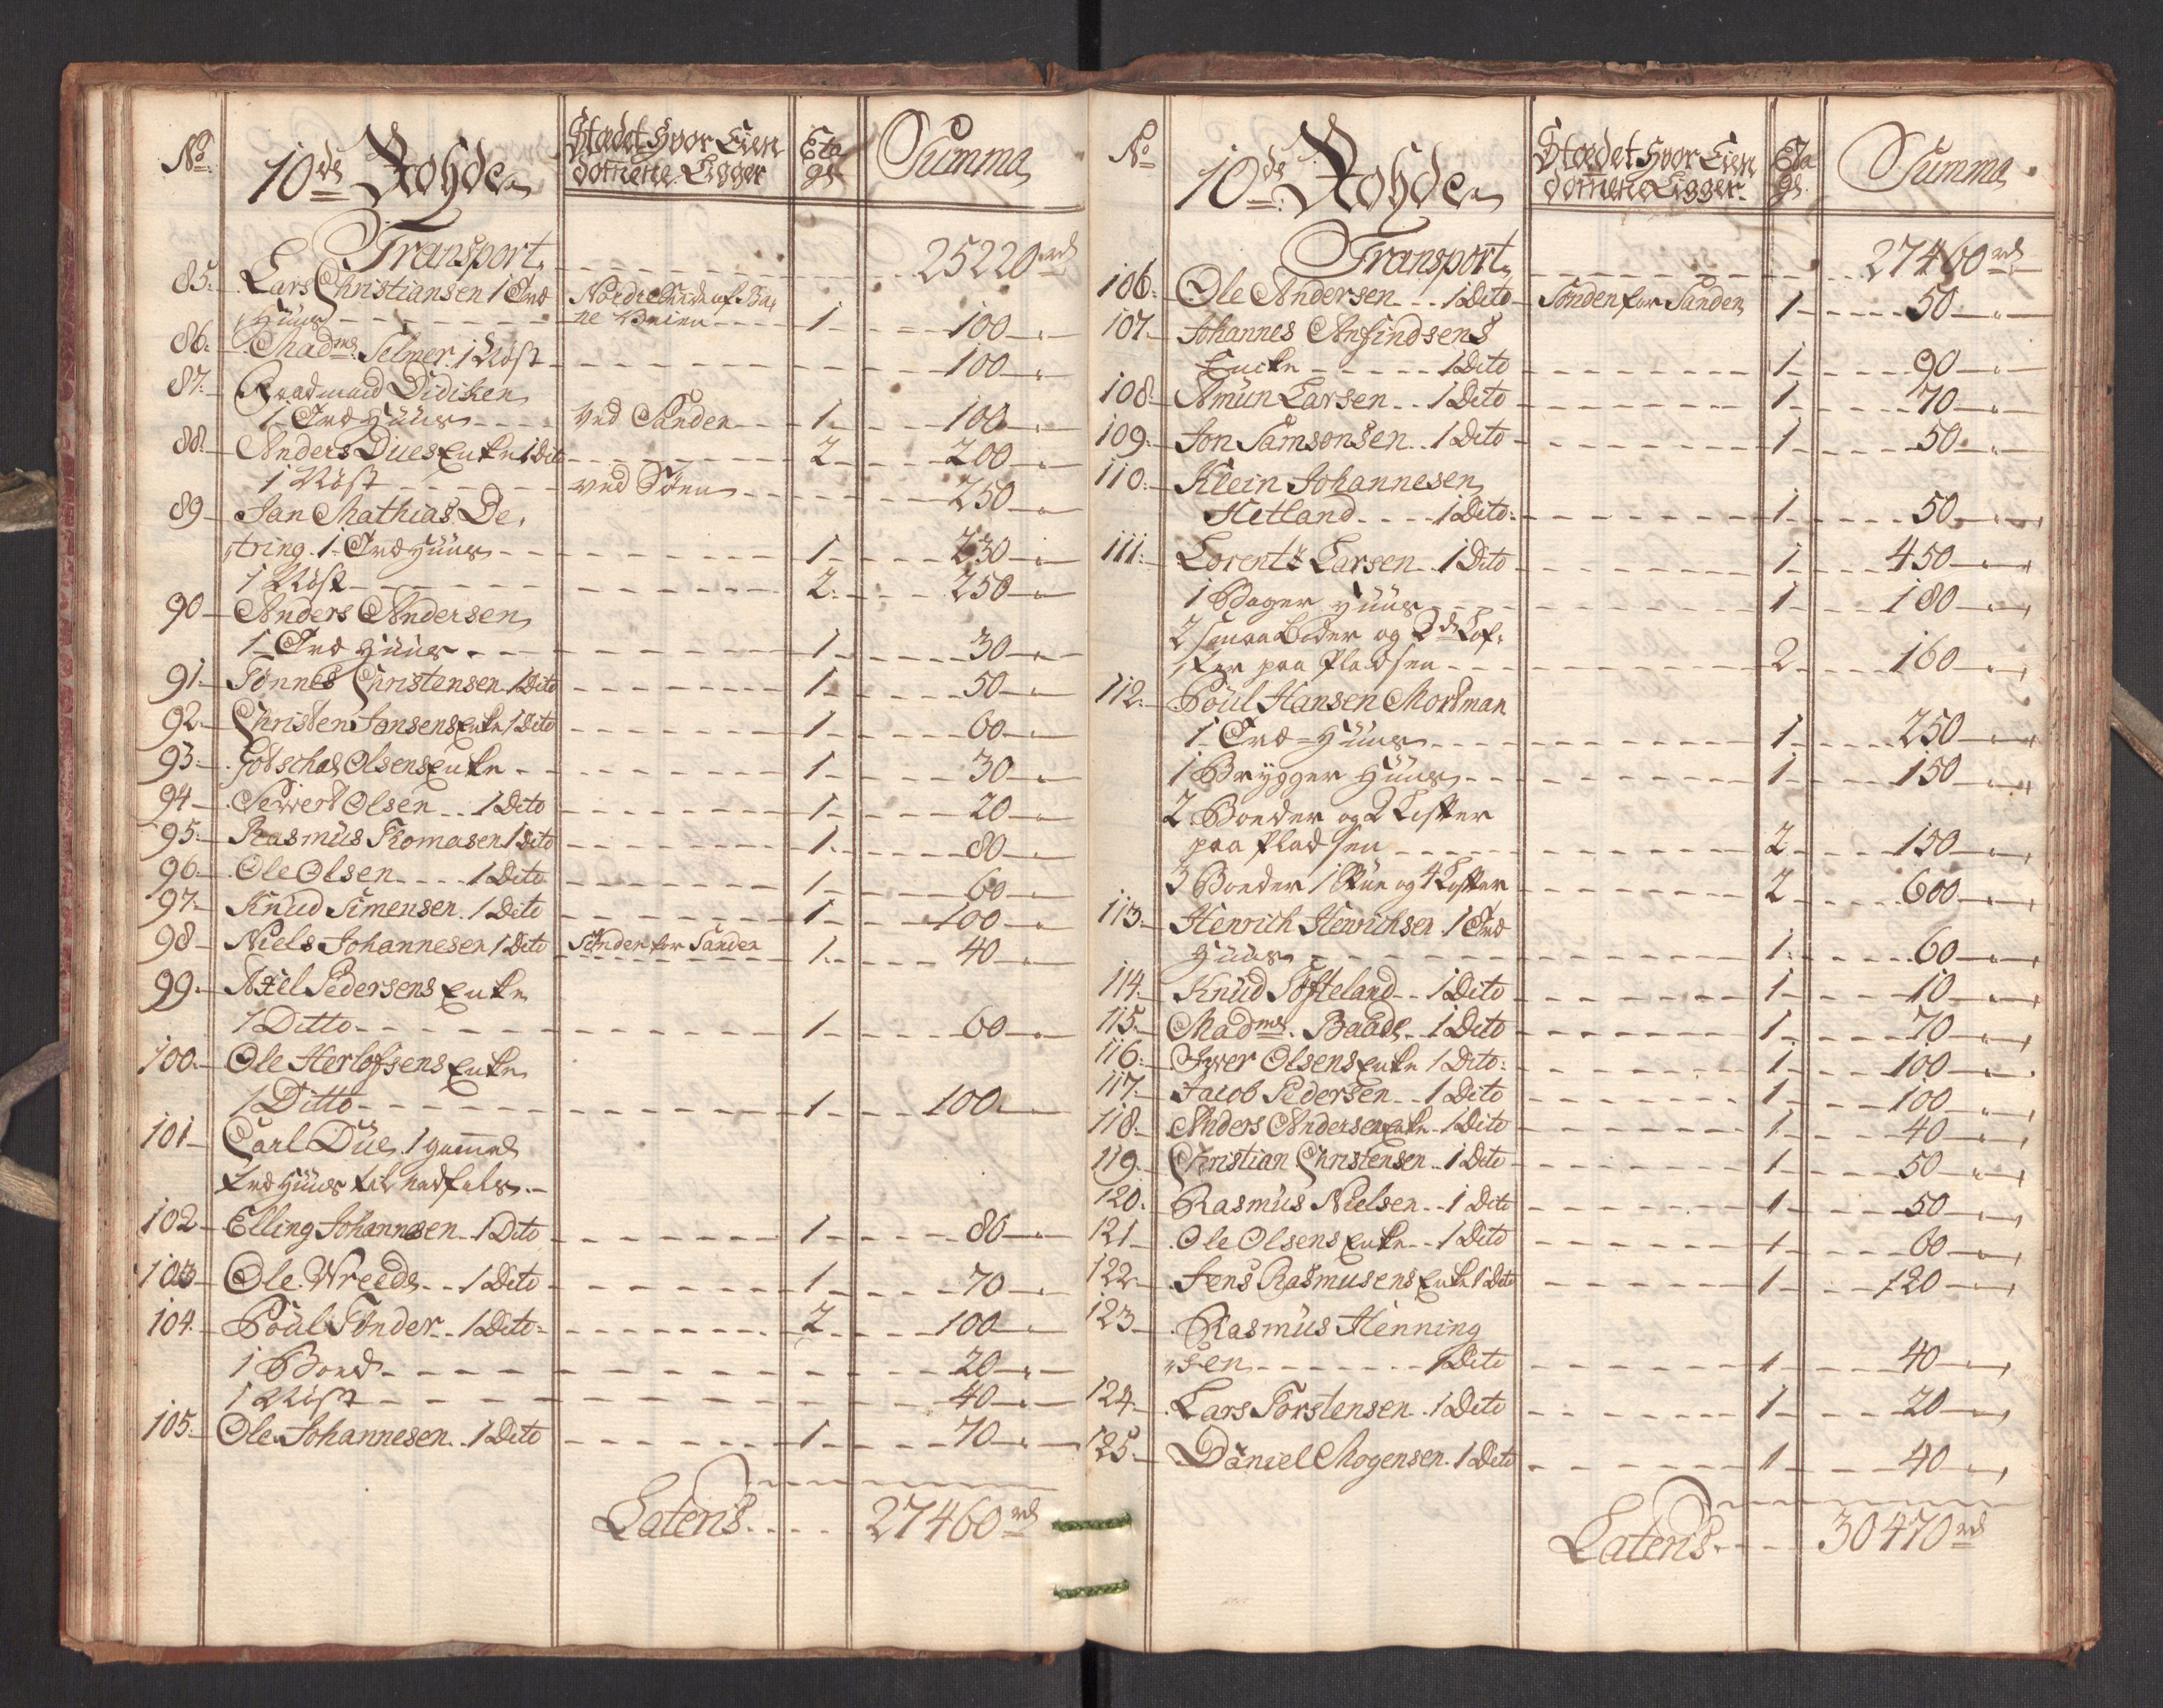 No. 10de Rohde Stædet hvor Eien Eta Summa
domene Ligger ge
Transport 25220 rd
85. Lars Christiansen 1 Træ Nordre Side af
Huus ne Veien 1 100
86. Madme. Selmer. 1 Nøst 100
87. Raadmand Didichen
1 Træ Huus ved Sanden 1 100
88. Anders Dues Enke 1 Dito 2 200
1 Nøst ved Søen 250
89 Jan Mathias De,
tring. 1 Træ Huus 1 230
1 Nøst 2 250
90 Anders Andersen
1 Træ Huus 1 30
91. Tönnes Christensen 1 Dito 1 50
92. Christen Jansens Enke 1 Dito 1 60
93. Gotschal Olsens Enke 1 30
94 Seivert Olsen 1 Dito 1 20
95. Rasmus Thomasen 1 Dito 1 80
96. Ole Olsen 1 Dito 1 60
97. Knud Simensen. 1 Dito 1 100
98 Niels Johannesen 1 Dito Sönden for Sanden 1 40
99. Axel Pedersens Enke
1 Ditto 1 60
100. Ole Herlofsens Enke
1 Ditto 1 100
101 Carl Due, 1 gammel
Træ Huus til nedfals.
102 Elling Johannesen 1 Dito 1 80
103 Ole Wreede 1 Dito 1 70
104. Poul Tönder 1 Dito 2 100
1 Boed 20
1 Nøst 40
105. Ole Johannesen 1 Dito 1 70
Lateris 27460 rd
No 10de Rohde Stædet hvor Eien Eta Summa
domene Ligger ge.
Transport 27460 rd
106. Ole Andersen 1 Dito Sönden for Sanden 1 50
107. Johannes Anfindsens
Encke 1 Dito 1 90
108. Amun Larsen 1 Dito 1 70
109. Jon Samsonsen 1 Dito 1 50
110. Klein Johannesen
Hetland 1 Dito 1 50
111. Lorentz Larsen 1 Dito 1 450
1 Bager Huus 1 180
2 smaa Boder og 2de Lof,
ter paa Pladsen 2 160
112. Poul Hansen Mortman
1 Træ-Huus 1 250
1 Brygger Huus 1 150
2 Boeder og 2 Lofter
paa Pladsen 2 150
3 Boeder 1 Stue og 4 Lofter 2 600
113 Henrich Henrichsen 1 Træ
Huus 1 60
114. Knud Töfteland 1 Dito 1 10
115. Madme. Baade 1 Dito 1 70
116. Iver Olsens Enke 1 Dito 1 100
117. Jacob Pedersen 1 Dito 1 100
118. Anders Andersens Enke 1 Dito 1 40
119. Christian Christensen 1 Dito 1 50
120. Rasmus Nielsen 1 Dito 1 50
121 Ole Olsens Enke 1 Dito 1 60
122 Jens Rasmusens Enke 1 Dito 1 120
123 Rasmus Henning
sen 1 Dito 1 40
124. Lars Torstensen 1 Dito 1 20
125. Daniel Mogensen 1 Dito 1 40
Lateris 30470 rd